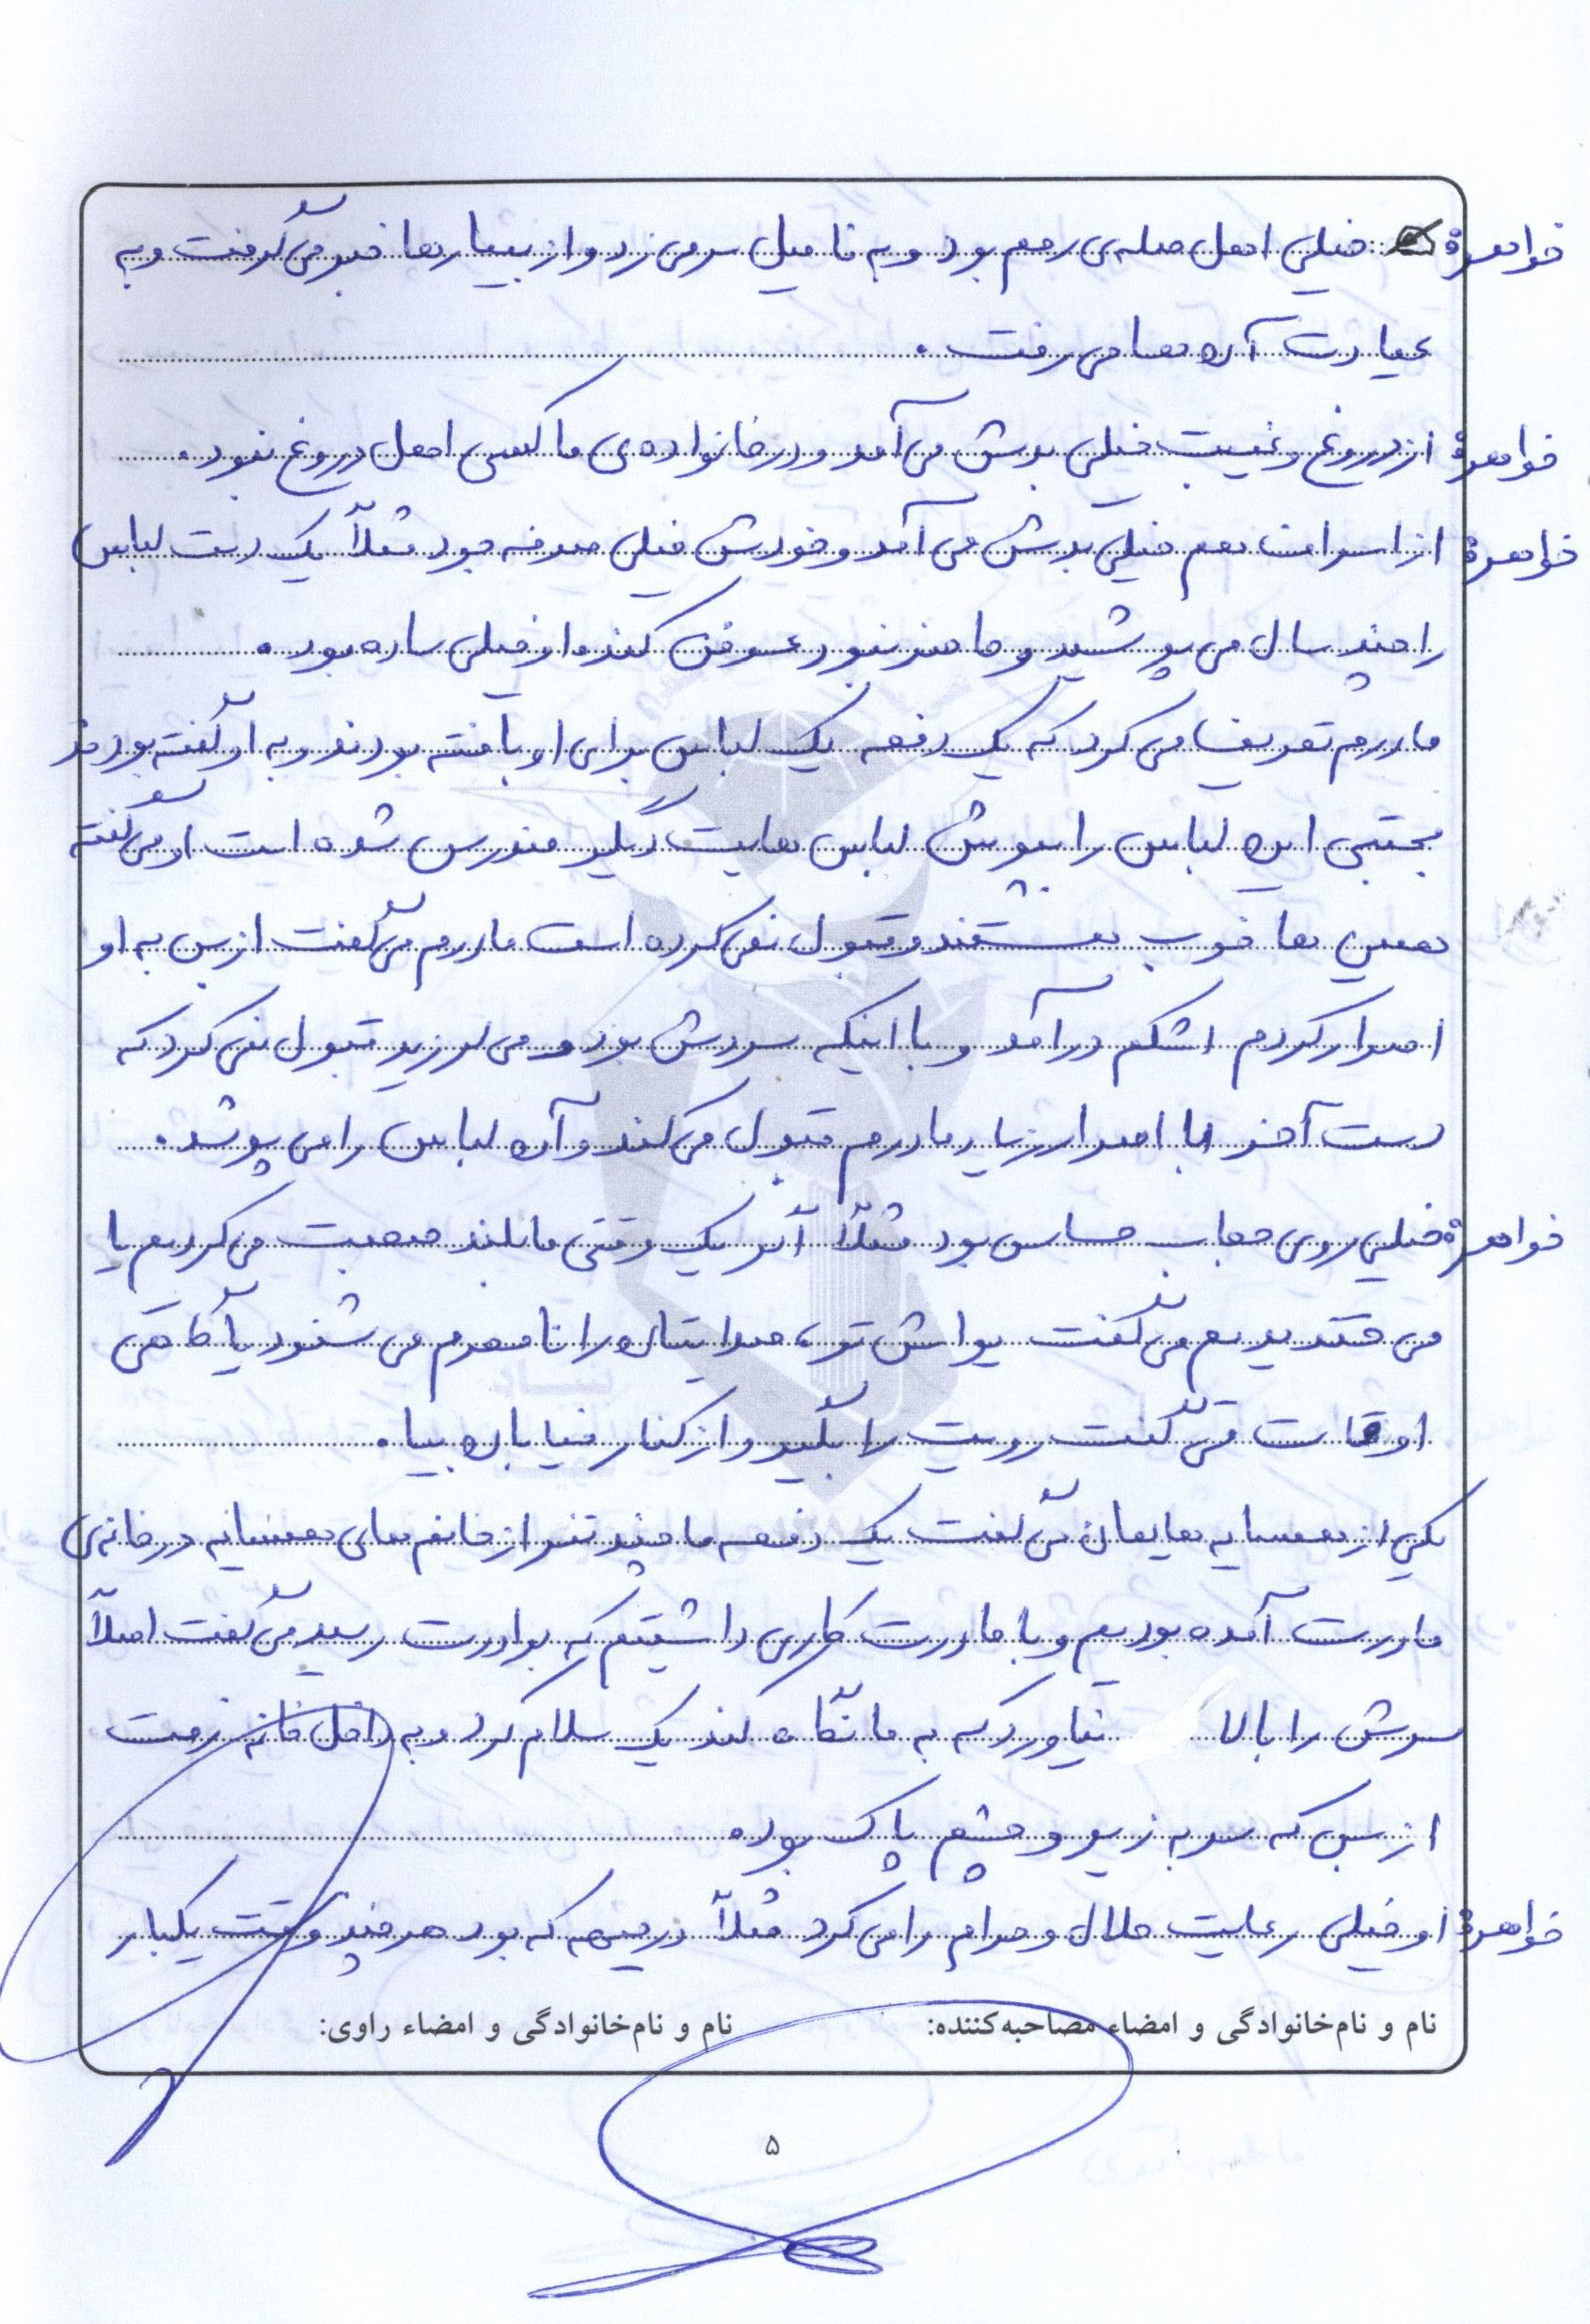 خواهر: خیلی اهل صله‌ی رحم بود و به فامیل سر می زد و از بیمارها خبر می گرفت و به
عیادت آن ها می رفت.
خواهر: از دروغ و غیبت خیلی بدش می آمد و در خانواده‌ی ما کسی اهل دروغ نبود.
خواهر: از اسراف هم خیلی بدش می آمد و خودش خیلی صرفه جود مثلاً یک دست لباس
را چند سال می پوشید و حاضر نبود عوض کند و او خیلی ساده بود.
مادرم تعریف می کرد که یک دفعه یک لباس برای او بافته بودند و به او گفته بودند
مجتبی این لباس را بپوش لباس هایت دیگر مندرس شده است او می گفته
همین ها خوب هستند و قبول نمی کرده است مادرم می گفت از بس به او
اصرار کردم اشکم درآمد و با اینکه سردش بود و می لرزید قبول نمی کرد که
دست آخر با اصرار زیاد مادرم قبول می کند و آن لباس را می پوشد.
خواهر: خیلی روی حجاب حساس بود مثلاً اگر یک وقتی ما بلند صحبت می کردیم یا
می خندیدیم می گفت یواش تر، صدایتان را نامحرم می شنود یا گاهی
اوقات می گفت رویت را بگیر و از کنار خیابان بیا.
یکی از همسایه هایمان می گفت یک دفعه ما چند نفر از خانم های همسایه در خانه‌ی
مادرت آمده بودیم و با مادرت کاری داشتیم که برادرت رسید می گفت اصلاً
سرش را بالا نیاورد که به ما نگاه کند یک سلام کرد و به داخل خانه رفت
از بس که سر به زیر و چشم پاک بود.
خواهر: او خیلی رعایت حلال و حرام را می کرد مثلاً در جبهه که بود هر چند وقت یکبار
نام و نام‌خانوادگی و امضاء مصاحبه‌کننده: نام و نام‌خانوادگی و امضاء راوی:
۵